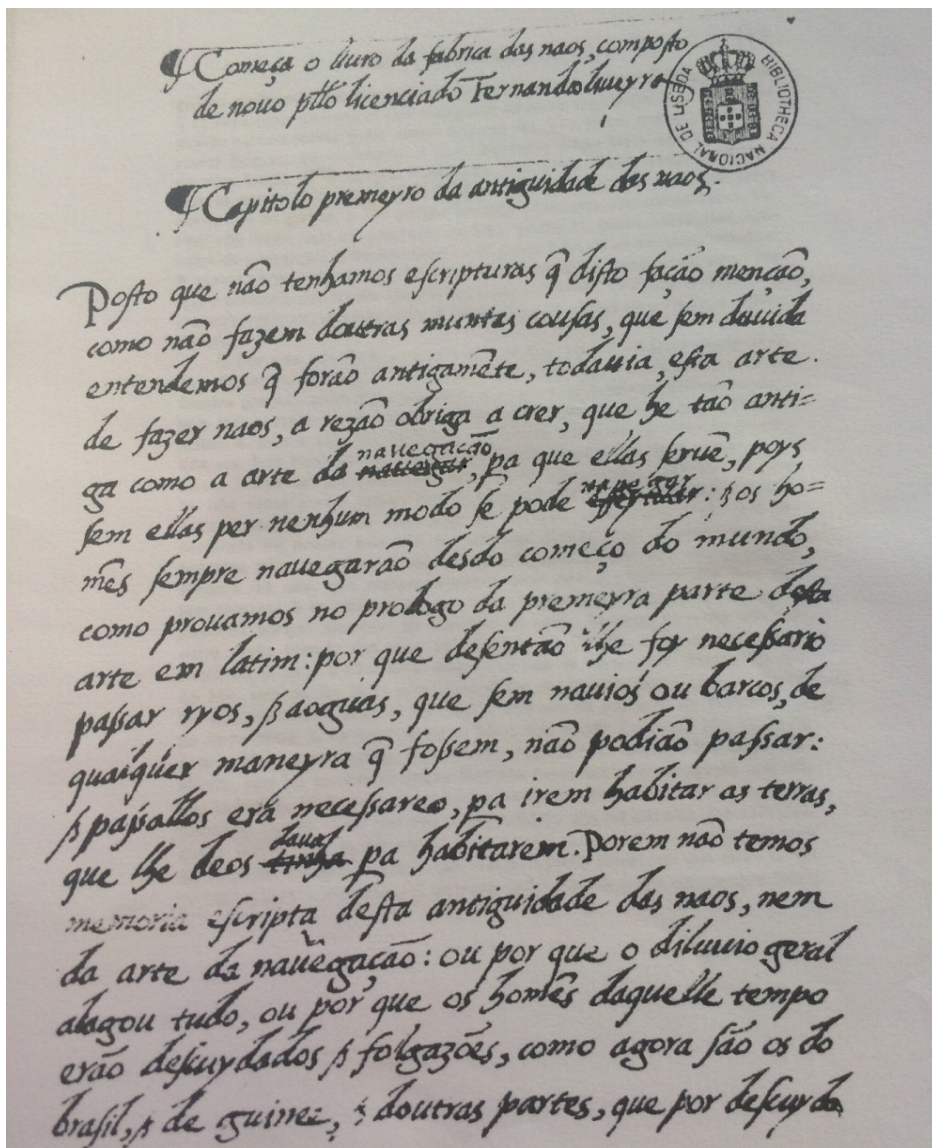 Começa o liuro da fabrica das naos, composto
de nouo pllo licenciado Fernandoliueyra
BIBLIOTHECA NACIONAL DE LISBOA
Capitolo premeyro da antiguidade das naos.
Posto que não tenhamos escripturas q̃ disto fação menção,
como não fazem doutras muntas cousas, que sem duuida
entendemos q̃ forão antigamẽte, todauia, esta arte
de fazer naos, a rezão obriga a crer, que he tão anti=
ga como a arte da nauegação, pa que ellas seruẽ, poys
sem ellas per nenhum modo se pode nauegar: & os ho=
mẽs sempre nauegarão desdo começo do mundo,
como prouamos no prologo da premeyra parte desta
arte em latim: por que desentão lhe foy necessario
passar ryos, & aoguas, que sem nauios ou barcos, de
qualquer maneyra q̃ fossem, não podião passar:
& passallos era necessareo, pa irem habitar as terras,
que lhe deos daua pa habitarem. Porem não temos
memoria escripta desta antiguidade das naos, nem
da arte da nauegação: ou por que o diluuio geral
alagou tudo, ou por que os homẽs daquelle tempo
erão descuydados & folgazões, como agora são os do
brasil, & de guinee, & doutras partes, que por descuydo